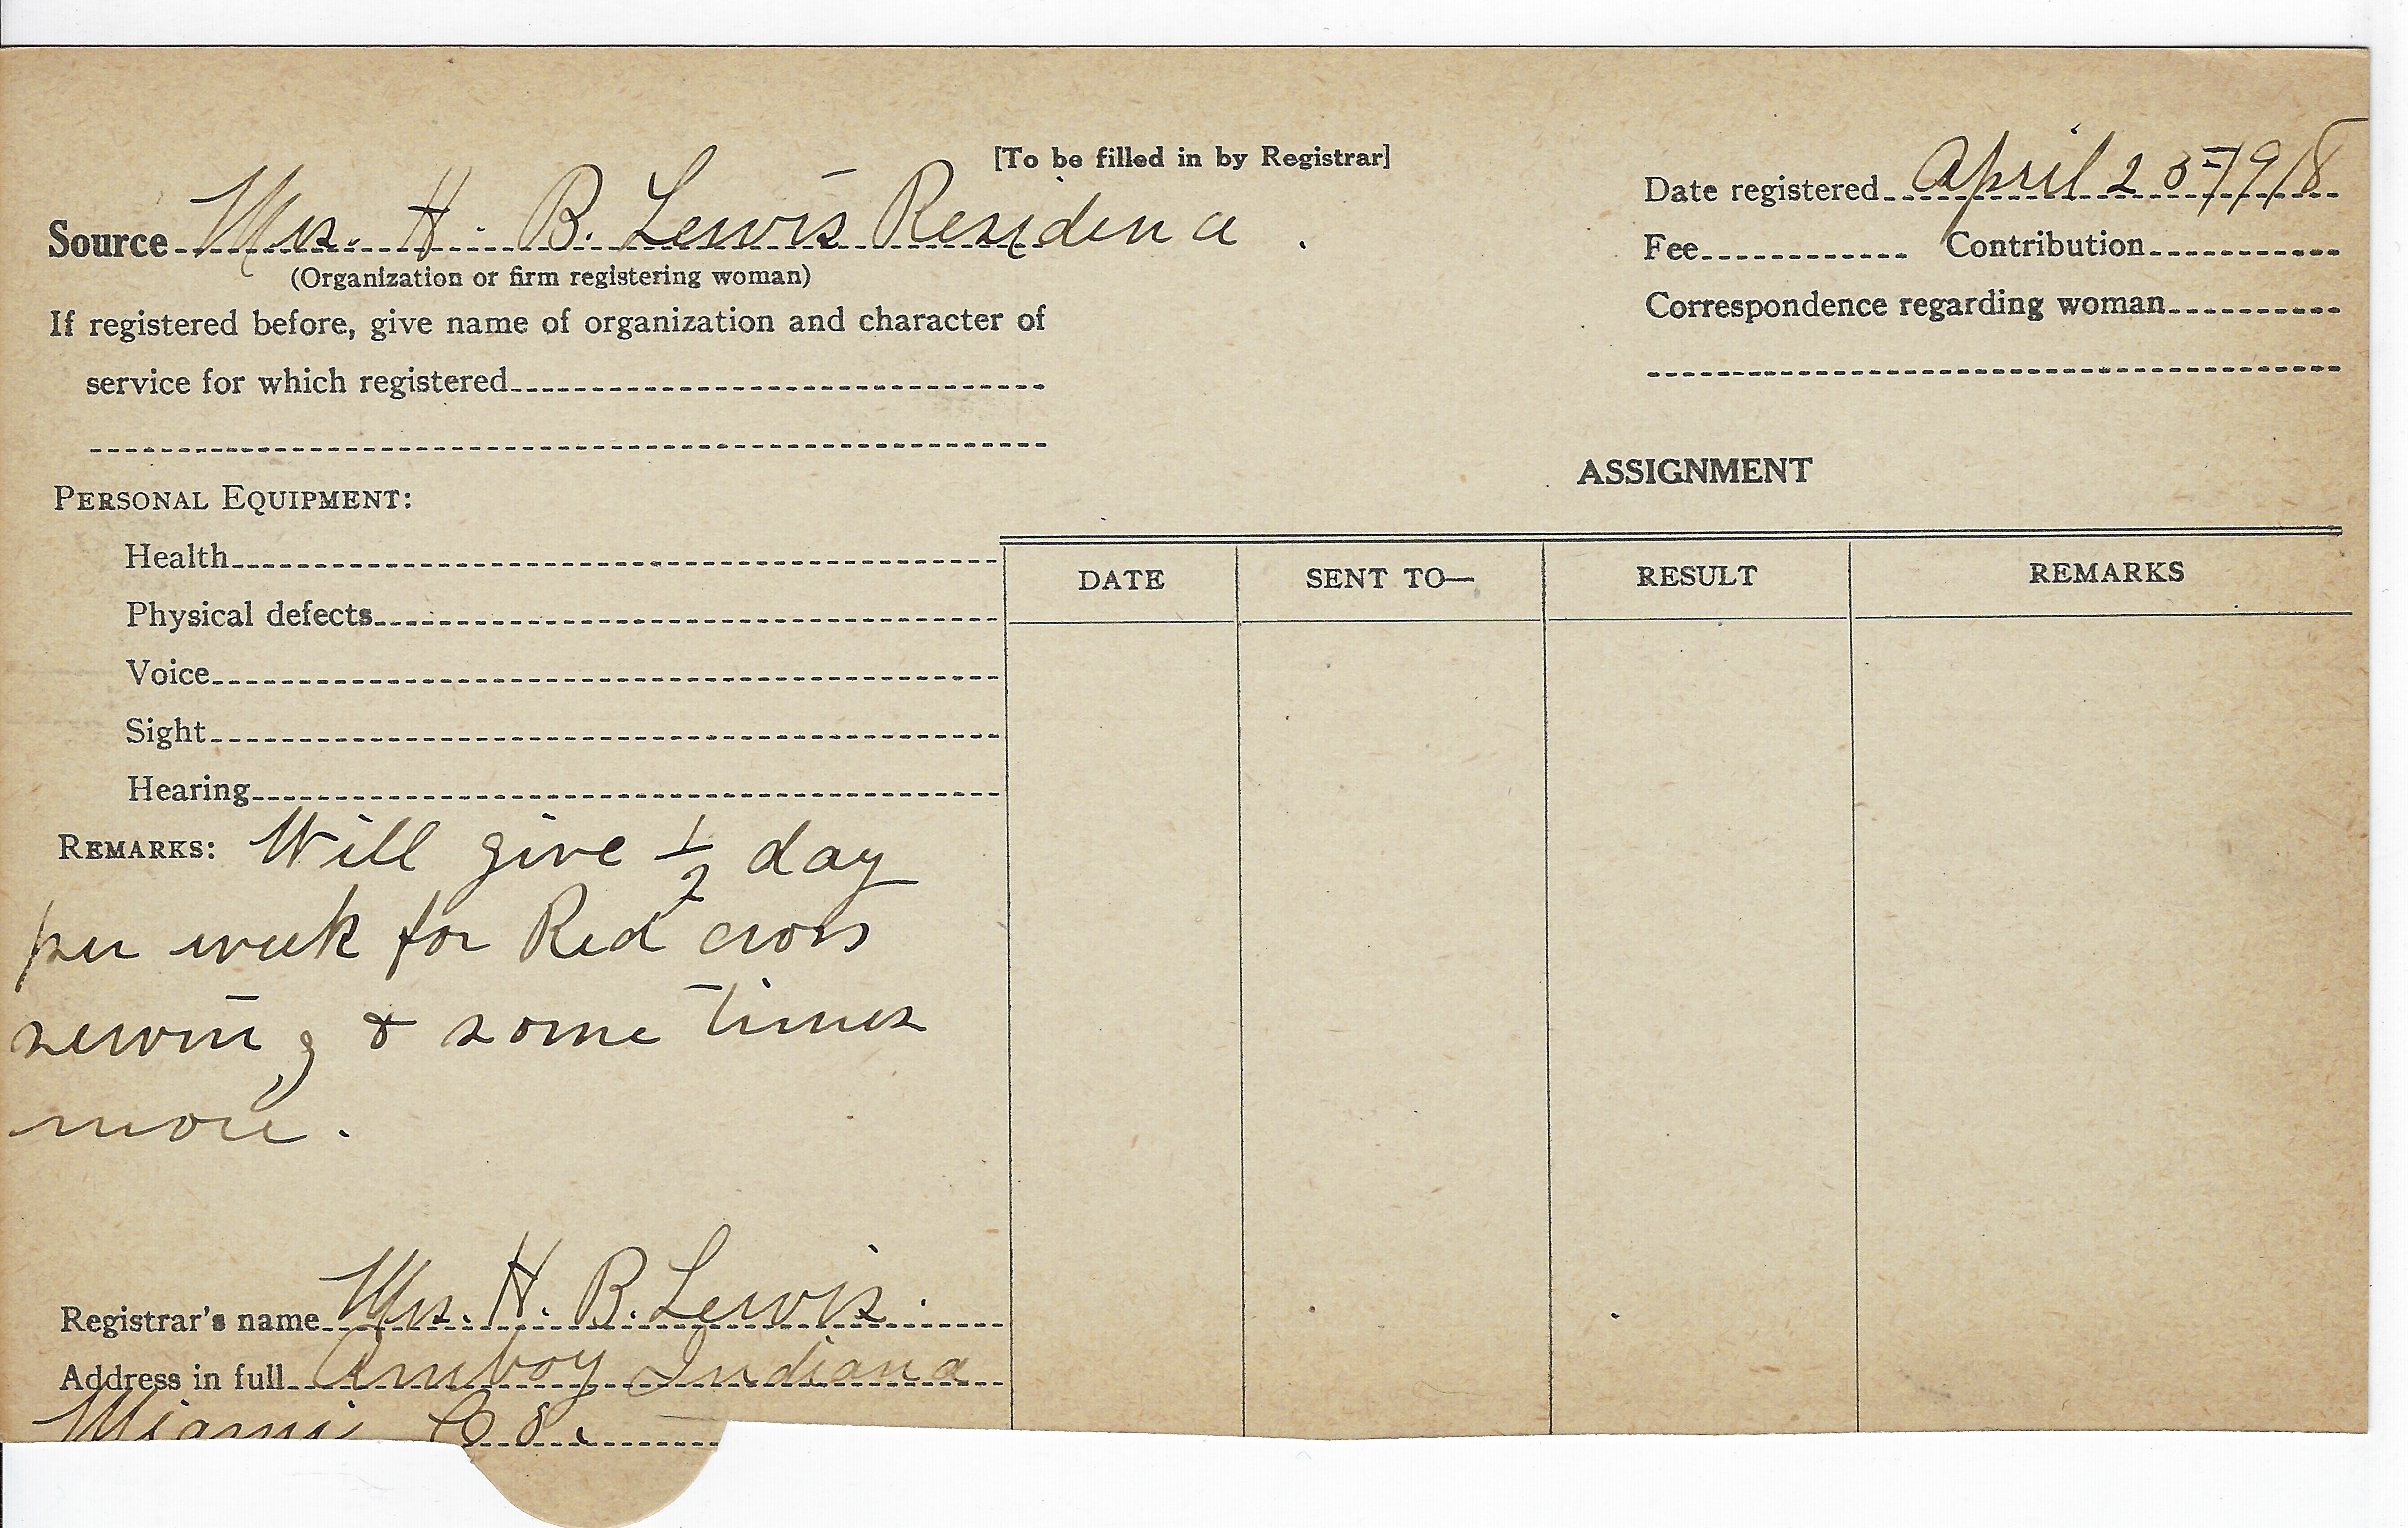 [To be filled in by Registrar]
Source Mrs. H. B. Lewis Residence.
(Organization or firm registering woman)
If registered before, give name of organization and character of
service for which registered
Date registered April 25 1918
Fee Contribution
Correspondence regarding woman
PERSONAL EQUIPMENT:
Health
Physical defects
Voice
Sight
Hearing
REMARKS: Will give 1/2 day
per week for Red cross
sewing & some times
more.
Registrar's name Mrs. H. B. Lewis.
Address in full Amboy Indiana
Miami Co.
ASSIGNMENT
DATE SENT TO— RESULT REMARKS